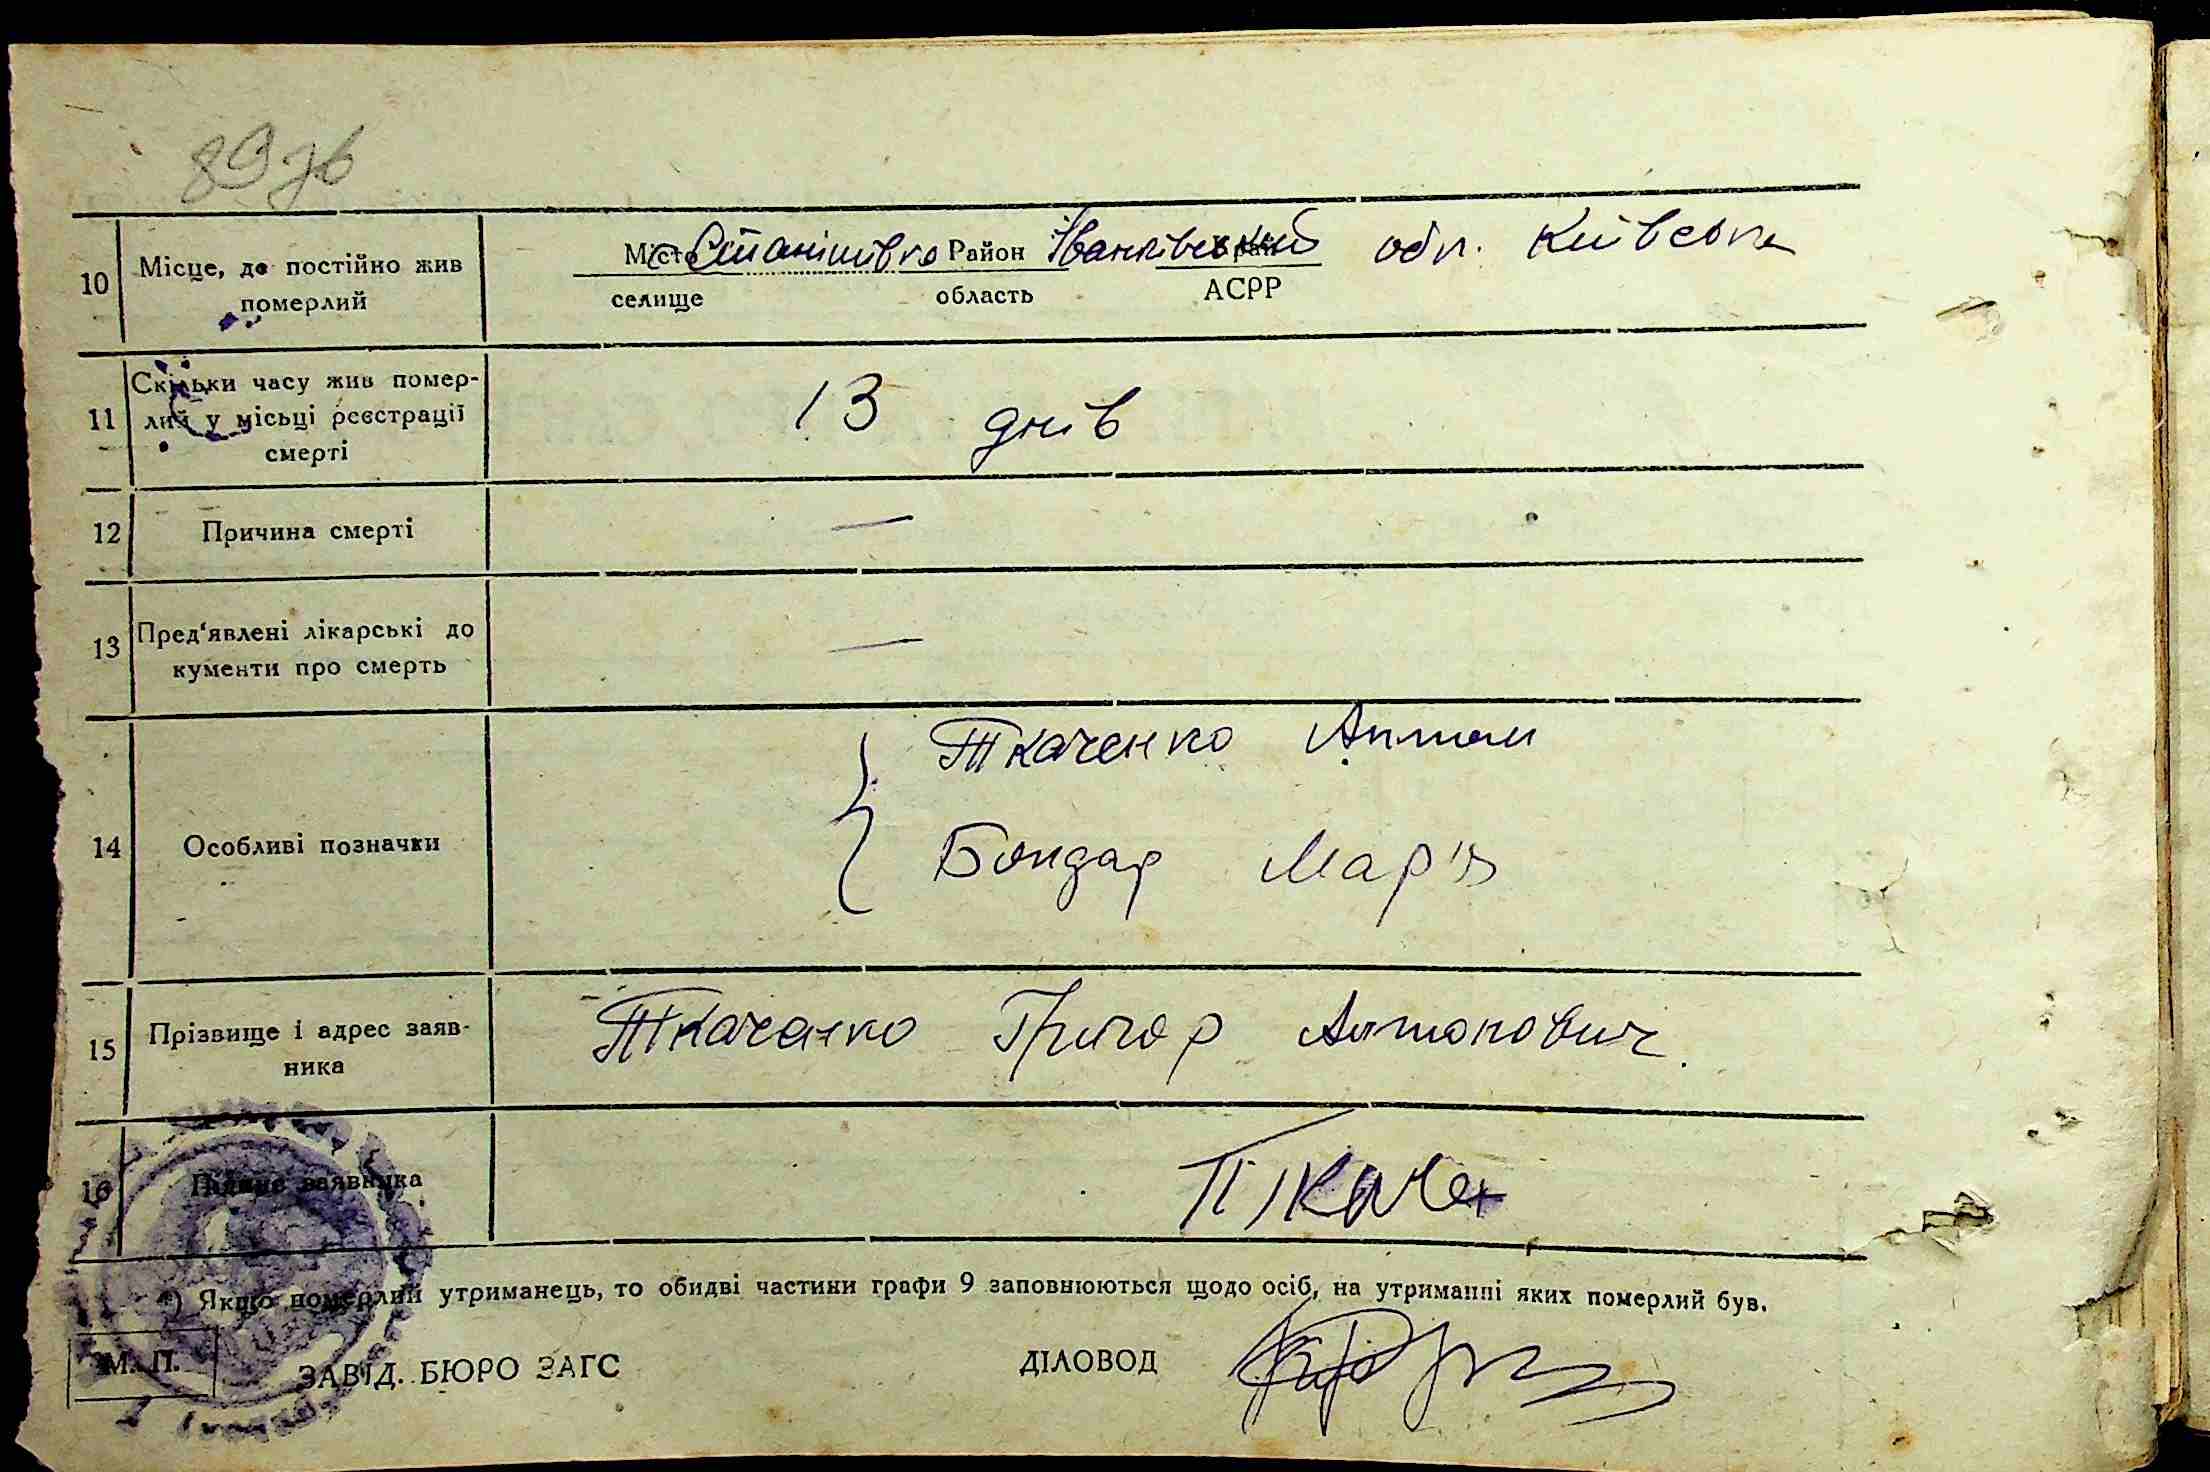 89 зв
10 Місце, де постійно жив померлий
Місто с Станішівка Район Іванківський край обл. Київська
селище область АСРР
11 Скільки часу жив помер-
лий у місьці реєстрації
смерті
13 днів
12 Причина смерті —
13 Пред‘явлені лікарські до
кументи про смерть —
14 Особливі позначки
Ткаченко Антон
Бондар Мар'я
15 Прізвище і адрес заяв-
ника
Ткаченко Григор Антонович
16 Підпис заявника
Ткачен
*) Якщо померлий утриманець, то обидві частини графи 9 заповнюються щодо осіб, на утриманні яких померлий був.
М. П.
ЗАВІД. БЮРО ЗАГС ДІЛОВОД